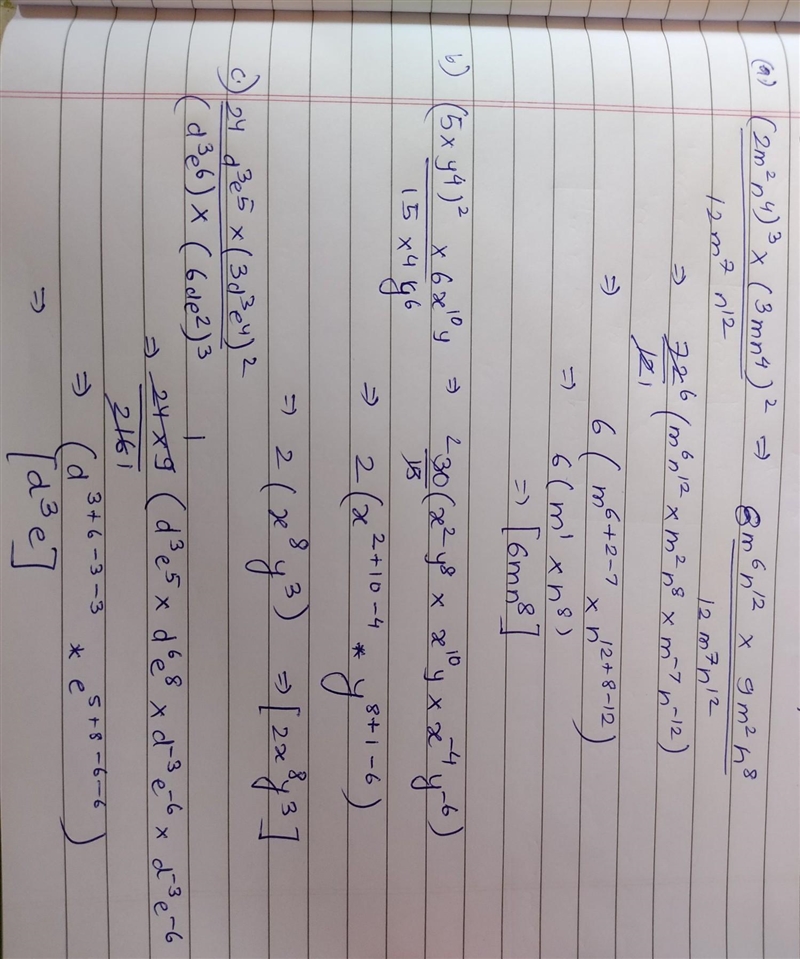 (a) (2m²n⁴)³ × (3mn⁴)² ⇒ 8m⁶n¹² × 9m²n⁸
12m⁷ n¹² 12m⁷n¹²
⇒ 72 6 (m⁶n¹² × m²n⁸ × m⁻⁷n⁻¹²)
12 1
⇒ 6 (m⁶⁺²⁻⁷ × n¹²⁺⁸⁻¹²)
⇒ 6 (m¹ × n⁸)
⇒ [6mn⁸]
b) (5xy⁴)² × 6x¹⁰y ⇒ 2 30 (x²y⁸ × x¹⁰y × x⁻⁴y⁻⁶)
15x⁴y⁶ 15
⇒ 2 (x²⁺¹⁰⁻⁴ * y⁸⁺¹⁻⁶)
⇒ 2 (x⁸y³) ⇒ [2x⁸y³]
c) 24 d³e⁵ × (3d³e⁴)²
(d³e⁶) × (6de²)³
⇒ 24×9 1 (d³e⁵ × d⁶e⁸ × d⁻³e⁻⁶ × d⁻³e⁻⁶
216 1
⇒ (d³⁺⁶⁻³⁻³ * e⁵⁺⁸⁻⁶⁻⁶)
⇒ [d³e]